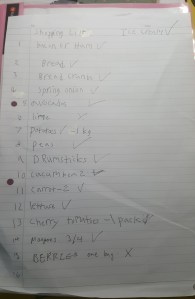 Shopping list
1
2 Bread ✓
3 Bread crumbs ✓
4 Spring onion ✓
5 avocado ✓
6 lime ✓
7 Potatoes ✓ -1kg
8 peas ✓
9 DRumsticks ✓
10 cucumber-2 ✓
11 carrot-2 ✓
12 lettuce ✓
13 cherry tomatoes -1 pack ✓
3/4 ✓
BERRIES one kg X